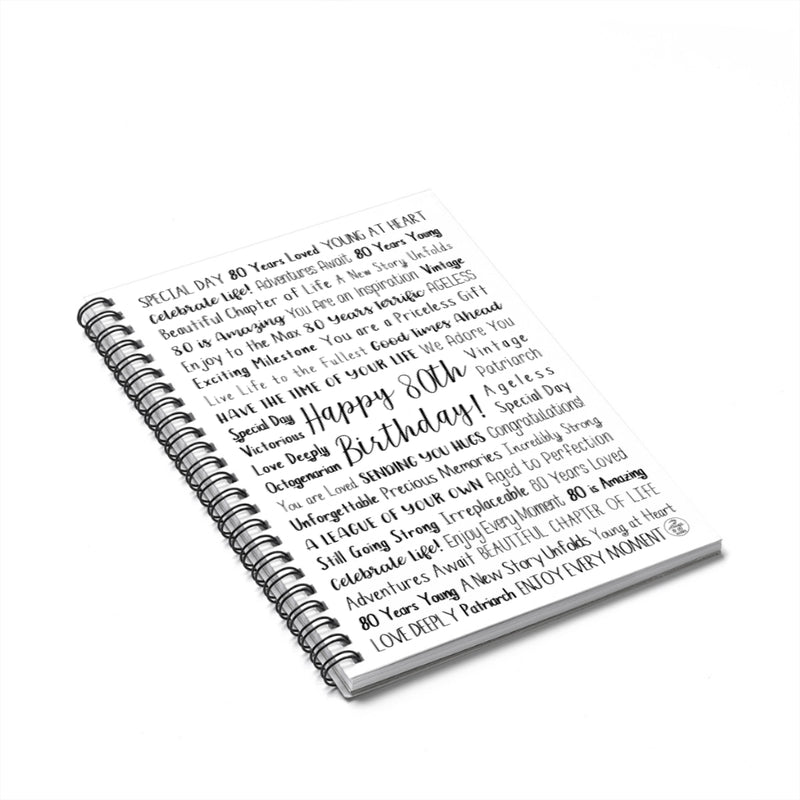 SPECIAL DAY 80 Years Loved YOUNG AT HEART
Celebrate Life! Adventures Await 80 Years Young
Beautiful Chapter of Life A New Story Unfolds
80 is Amazing You Are an Inspiration Vintage
Enjoy to the Max 80 Years Terrific AGELESS
Exciting Milestone You are a Priceless Gift
Live Life to the Fullest Good Times Ahead
HAVE THE TIME OF YOUR LIFE We Adore You
Special Day
Victorious
Love Deeply
Octagenarian
Happy 80th
Birthday!
Vintage
Patriarch
Ageless
Special Day
You are Loved SENDING YOU HUGS Congratulations!
Unforgettable Precious Memories Incredibly Strong
A LEAGUE OF YOUR OWN Aged to Perfection
Still Going Strong Irreplaceable 80 Years Loved
Celebrate Life! Enjoy Every Moment 80 is Amazing
Adventures Await BEAUTIFUL CHAPTER OF LIFE
80 Years Young A New Story Unfolds Young at Heart
LOVE DEEPLY Patriarch ENJOY EVERY MOMENT